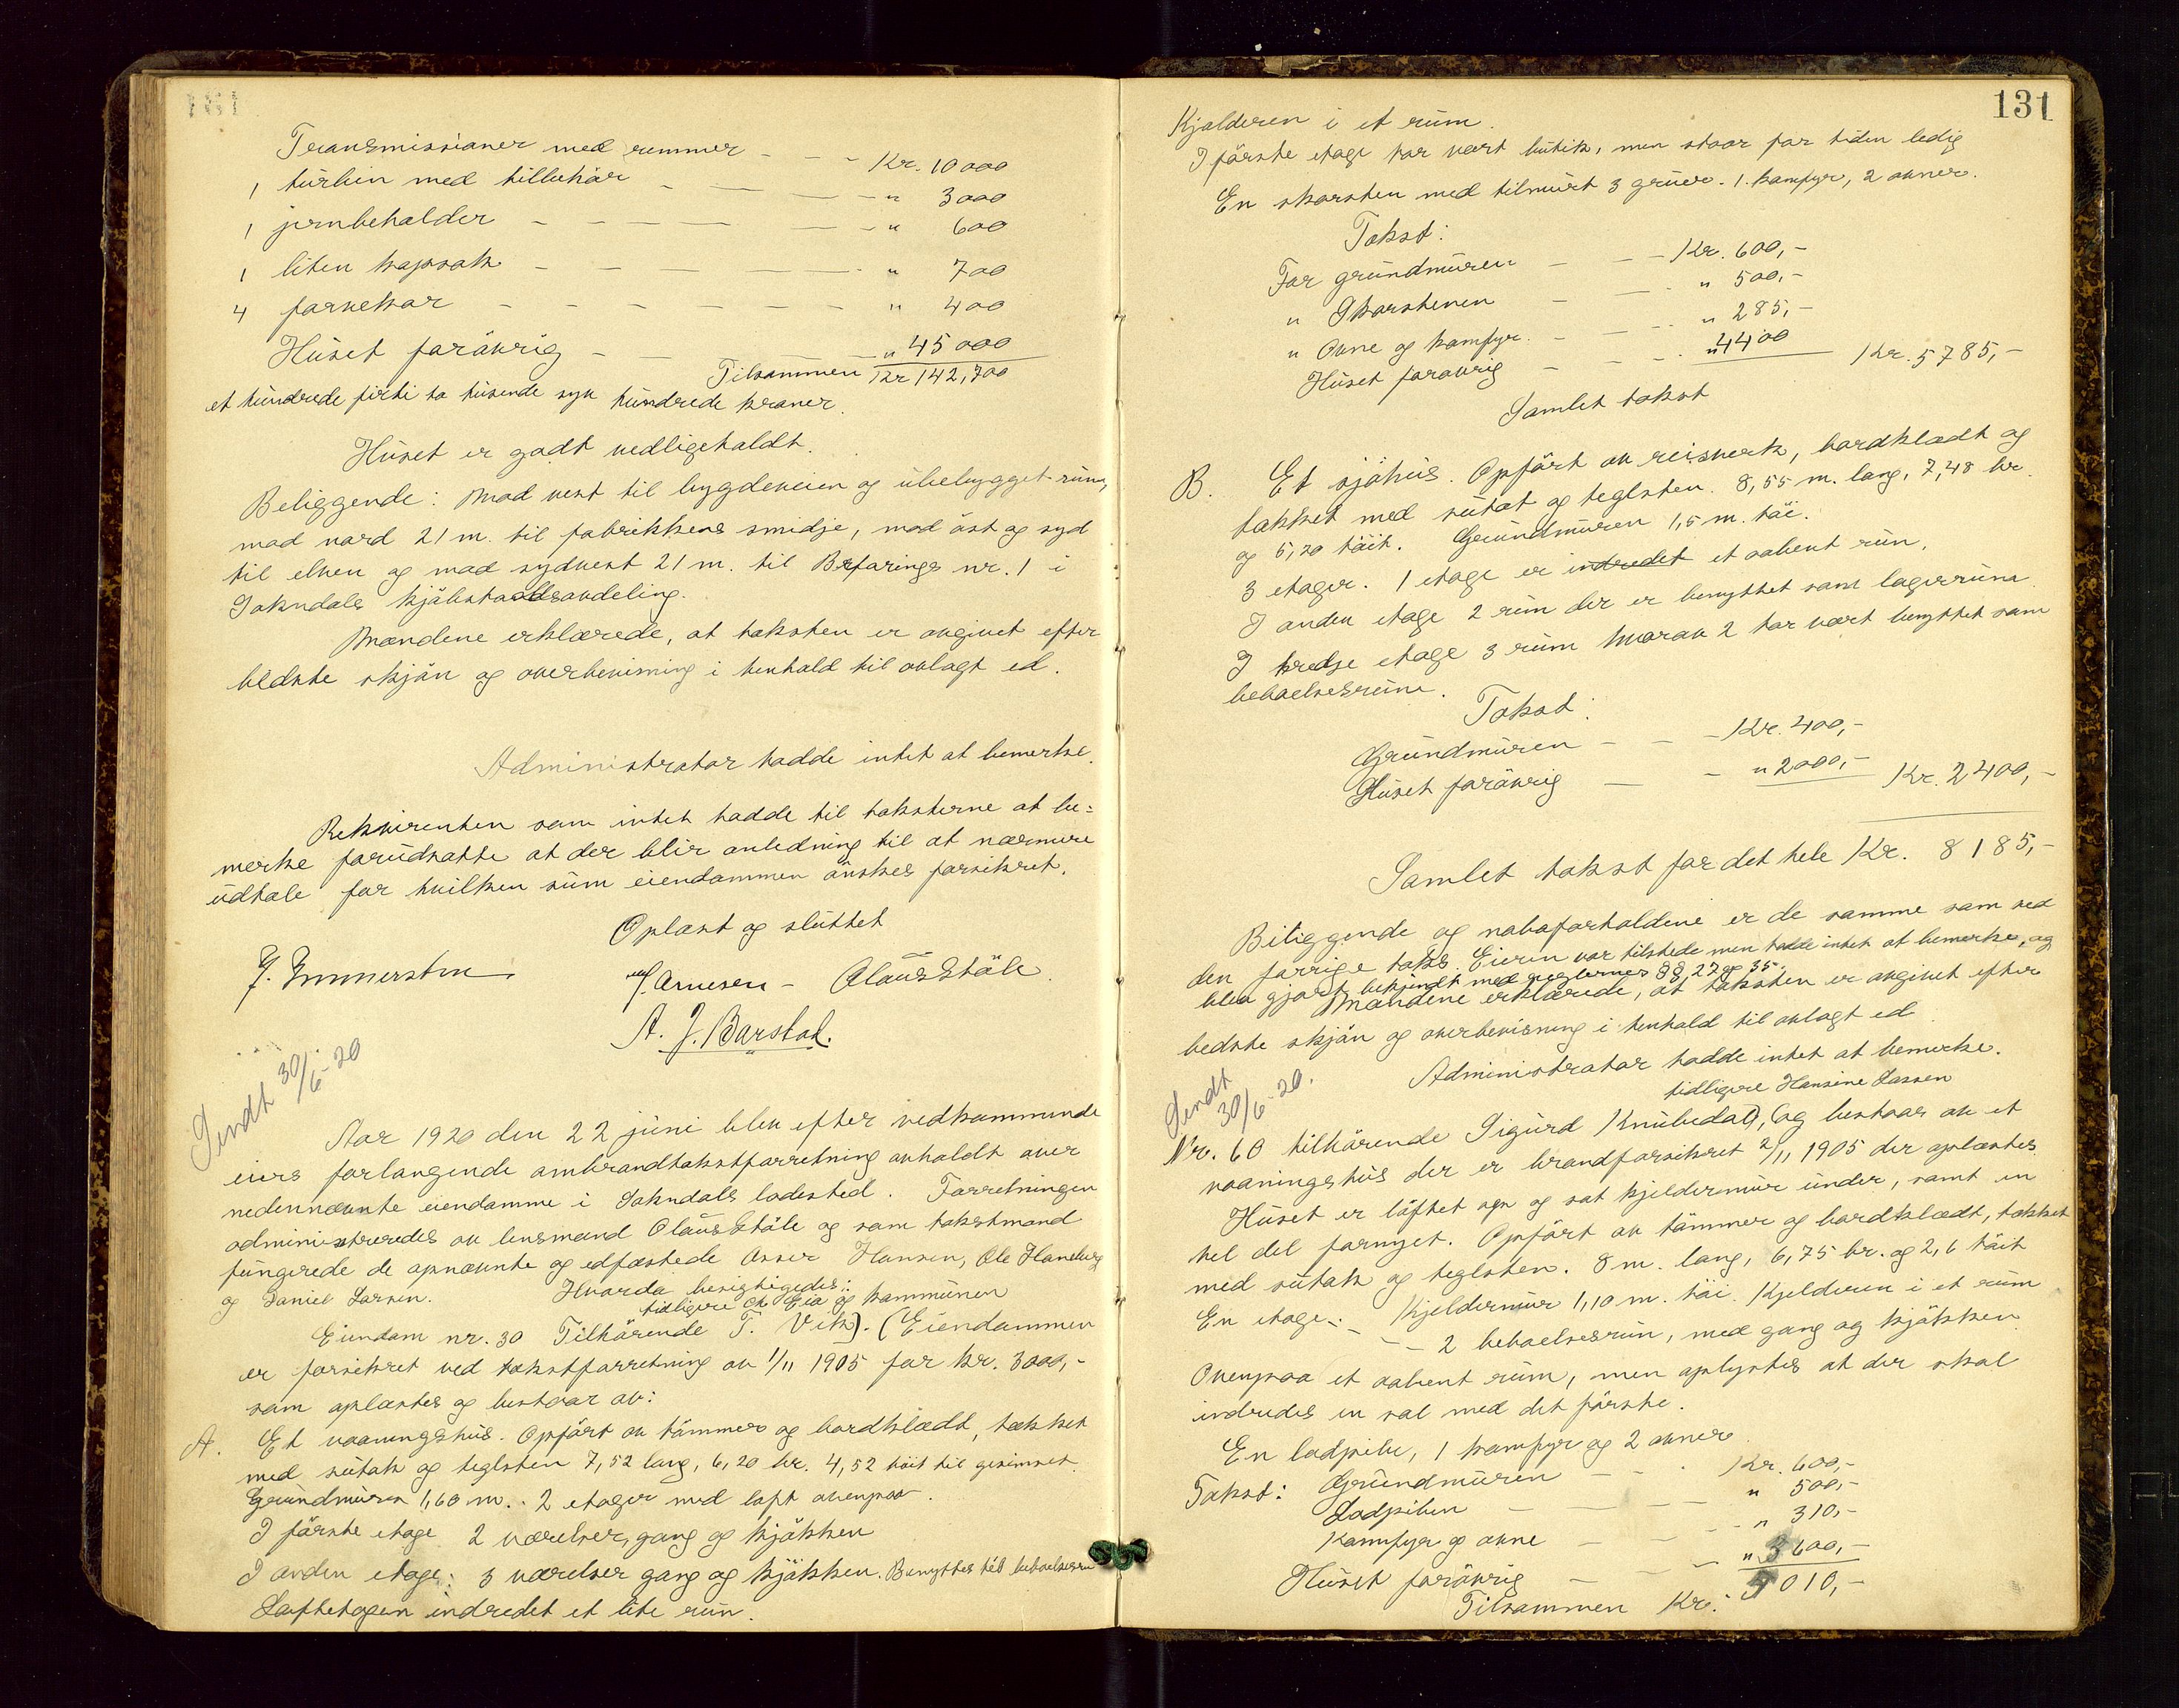 Transmissioner med remmer - - - Kr. 10000
1 turbin med tilbehör - - - " 3000
1 jernbeholder - - - " 600
1 liten kapsak - - - " 700
4 farvekar - - - " 400
Huset forövrig - - - " 45000
Tilsammen Kr 142,700
et hundrede firti to tusende syv hundrede kroner.
Huset er godt vedligeholdt.
Beliggende: Mod vest til bygdeveien og ubebygget rum,
mod nord 21 m. til fabrikkens smidje, mod öst og syd
til elven og mod sydvest 21 m. til Befarings nr. 1 i
Sokndals kjöbstadsavdeling.
Mændene erklærede, at taksten er avgivet efter
bedste skjön og overbevisning i henhold til avlagt ed.
Administrator hadde intet at bemerke.
Rekvirenten som intet hadde til taksterne at be=
merke forudsatte at der blir anledning til at nærmere
udtale for hvilken sum eiendommen önskes forsikret.
Oplæst og sluttet
J. Emmersten Arnesen - Olaus Ståle.
A. J. Barstad.
Sendt 30/6-20
Aar 1920 den 22 juni blev efter vedkommende
eiers forlangende ombrandtakstforretning avholdt over
nedennævnte eiendomme i Sokndals ladested. Forretningen
administreredes av lensmand Olaus Ståle og som takstmænd
fungerede de opnævnte og edfæstede Osser Hansen, Ole Haneberg
og Daniel Larsen. Hvorda besigtigedes:
tidligere O. Eia og kommunen
Eiendom nr. 30 Tilhörende T. Vik). (Eiendommen
er forsikret ved takstforretning av 1/11 1905 for kr. 3000,-
som oplæstes og bestaar av:
A. Et vaaningshus. Opfört av tömmer og bordklædt, tækket
med sutak og teglsten 7,52 lang, 6,20 br. 4,52 höit til gesimset.
Grundmuren 1,60 m. 2 etager med loft ovenpaa.
I förste etage 2 værelser, gang og kjökken
I anden etage: 3 værelser gang og kjökken. Benyttes til beboelsesrum
Loftetagen indredet et lite rum.
131
Kjelderen i et rum.
I förste etage har vært butik, men staar for tiden ledig
En skorsten med tilmurt 3 gruer. 1. komfyr, 2 ovner.
Takst:
For grundmuren - - - Kr. 600,-
" Skorstenen - - - " 500,-
" Ovne og komfyr. - - - " 285,-
Huset forövrig - - - " 4400
Samlet takst Kr. 5785,-
B. Et sjöhus. Opfört av reisverk, bordklædt og
tækket med sutat og teglsten. 8,55 m. lang, 7,48 br.
og 5,20 höit. Grundmuren 1,5 m. höi.
3 etager. 1 etage er indredet et aabent rum.
I anden etage 2 rum der er benyttet som lagerrum.
I tredje etage 3 rum hvorav 2 har vært benyttet som
beboelsesrum.
Takst:
Grundmuren - - - Kr. 400,-
Huset forövrig - - " 2000,- Kr. 2400,-
Samlet takst for det hele Kr. 8185,-
Beliggende og naboforholdene er de samme som ved
den forrige takst. Eieren var tilstede men hadde intet at bemerke, og
blev gjort bekjendt med reglernes §§ 27 og 35.
Mændene erklærede, at taksten er avgivet efter
bedste skjön og overbevisning i henhold til avlagt ed
Administrator hadde intet at bemerke.
Sendt 30/6-20.
tidligere Hansine Lassen
Nr. 60 tilhörende Sigurd Knubedal), (og bestaar av et
vaaningshus der er brandforsikret 2/11 1905 der oplæstes
Huset er löftet op og sat kjeldermur under, samt en
hel del fornyet. Opfört av tömmer og bordklædt, tækket
med sutak og teglsten. 8 m. lang, 6,75 br. og 2,6 höit
En etage. Kjeldermur 1,10 m. höi. Kjelderen i et rum
- - - 2 beboelsesrum, med gang og kjökken
Ovenpaa et aabent rum, men oplystes at der skal
indredes en sal med det förste.
En ladpibe, 1 komfyr og 2 ovner.
Takst: Grundmuren - - - Kr. 600,-
Ladpiben - - - " 500,-
Komfyr og ovne - - - " 310,-
Huset forövrig - - - " 3600,-
Tilsammen Kr. 5010,-